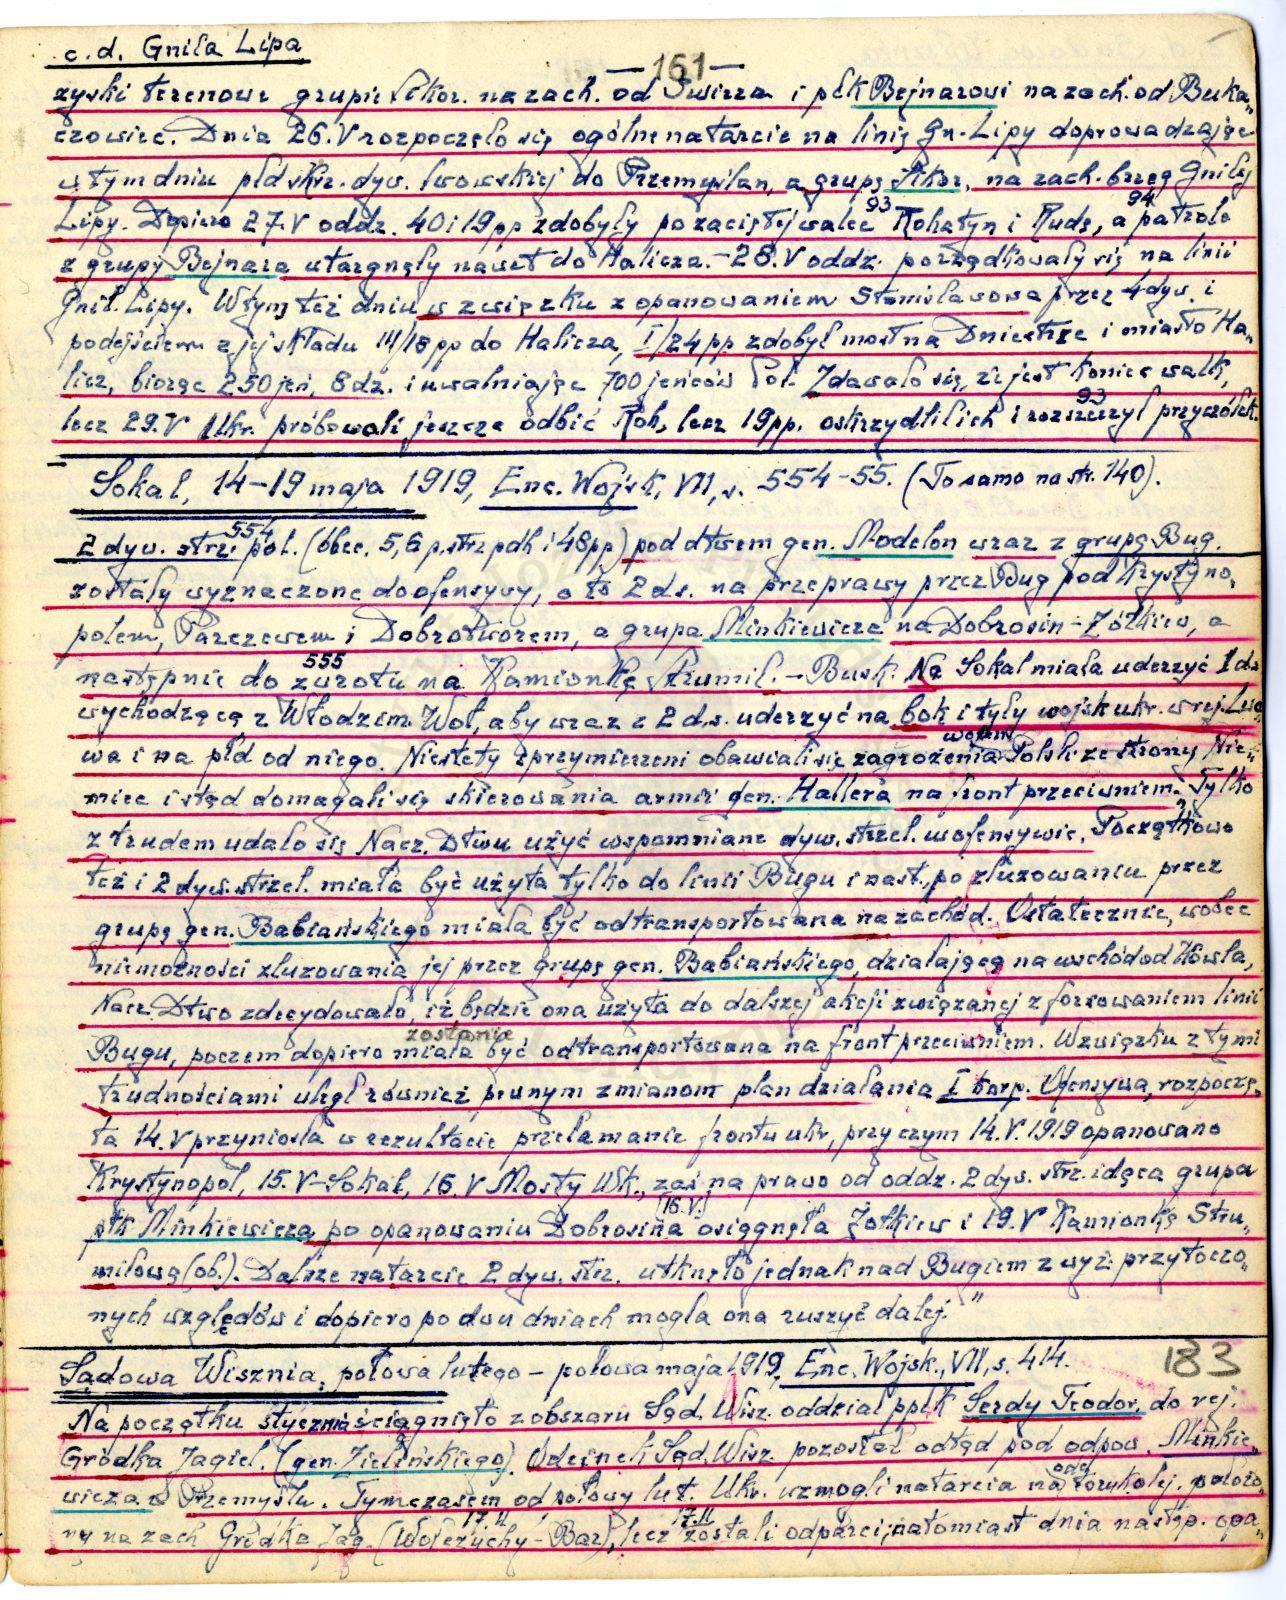 c.d. Gniła Lipa
— 161 —
zyski terenowe grupie Sikor. na zach. od Świrza i płk Bejnarowi na zach. od Buka„
czowiec. Dnia 26.V rozpoczęło się ogólne natarcie na linię Gn. Lipy doprowadzając
w tym dniu płd skrz. dyw. lwowskiej do Przemyślan, a grupę Sikor. na zach. brzeg Gniłej
Lipy. Dopiero 27.V oddz. 40 i 19 pp zdobyły po zaciętej walce 93 Rohatyn i Rudę, a 94 patrole
z grupy Bejnara wtargnęły nawet do Halicza. – 28.V oddz. porządkowały się na linii
Gnił. Lipy. W tym też dniu w związku z opanowaniem Stanisławowa przez 4 dyw. i
podejściem z jej składu III/18 pp do Halicza, I/24 pp zdobył most na Dniestrze i miasto Ha„
licz, biorąc 250 jeń, 8 dz. i uwalniając 700 jeńców Pol. Zdawało się, że jest koniec walk,
lecz 29.V Ukr. próbowali jeszcze odbić Roh, lecz 19 pp. oskrzydlił ich i 93 rozszerzył przyczółek.
Sokal, 14–19 maja 1919, Enc. Wojsk, VII, s. 554-55. (To samo na str. 140).
554
2 dyw. strz. pol. (obec. 5, 6 p. strz pdh i 48 pp) pod dtwem gen. Modelon wraz z grupą Bug.
zostały wyznaczone do ofensywy, a to 2 d.s. na przeprawy przez Bug pod Krystyno„
polem, Parczewem i Dobrotworem, a grupa Minkiewicza na Dobrosin – Żółkiew, a
następnie do 555 zwrotu na Kamionkę Strumil. – Busk. Na Sokal miała uderzyć 1 d.s
wychodzącą z Włodzim. Woł, aby wraz z 2 d.s. uderzyć na bok i tyły wojsk ukr. w rej. Lwo
wa i na płd od niego. Niestety sprzymierzeni obawiali się zagrożenia Polski ze strony Nie„
miec i stąd domagali się skierowania armii gen. Hallera na front przeciwniem. Tylko
z trudem udało się Nacz. Dtwu użyć wspomniane dyw. strzel. w ofensywie. Początkowo
też i 2 dyw. strzel. miała być użyta tylko do linii Bugu i nast. po zluzowaniu przez
grupę gen. Babiańskiego miała być odtransportowana na zachód. Ostatecznie, wobec
niemożności zluzowania jej przez grupę gen. Babiańskiego, działającą na wschód od Kowla,
Nacz. Dtwo zdecydowało, iż będzie ona użyta do dalszej akcji związanej z forsowaniem linii
zostanie
Bugu, poczem dopiero miała być odtransportowana na front przeciwniem. W związku z tymi
trudnościami uległ również pewnym zmianom plan działania I korp. Ofensywa, rozpoczę„
ta 14.V przyniosła w rezultacie przełamanie frontu ukr, przy czym 14.V.1919 opanowano
Krystynopol, 15.V – Sokal, 16.V Mosty Wk., zaś na prawo od oddz. 2 dyw. strz. idąca grupa
płk Minkiewicza po opanowaniu Dobrosina (16.V.) osiągnęła Żółkiew i 19.V Kamionkę Stru„
miłową (ob.). Dalsze natarcie 2 dyw. strz. utknęło jednak nad Bugiem z wyż. przytoczo„
nych względów i dopiero po dwu dniach mogła ona ruszyć dalej."
Sądowa Wisznia, połowa lutego – połowa maja 1919, Enc. Wojsk., VII, s. 414.
183
Na początku stycznia ściągnięto z obszaru Sąd. Wisz. oddział ppłk Serdy Teodor. do rej.
Gródka Jagiel. (gen. Zielińskiego). Odcinek Sąd. Wisz. pozostał odtąd pod odpow. Minkie„
wicza z Przemyśla. Tymczasem od połowy lut. Ukr. wzmogli natarcia na odc. toru kolej. położo„
ny na zach Gródka Jag. (Wołczuchy – Bar) 17.II, lecz 17.II zostali odparci; natomiast dnia następ. opa„